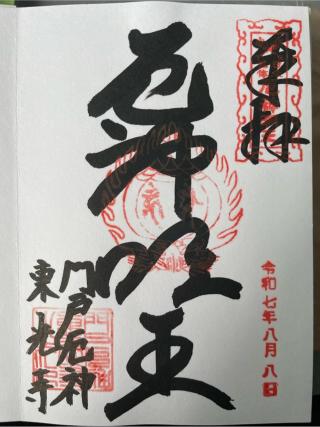 奉拝
厄神明王
令和七年八月八日
門戸厄神
東光寺